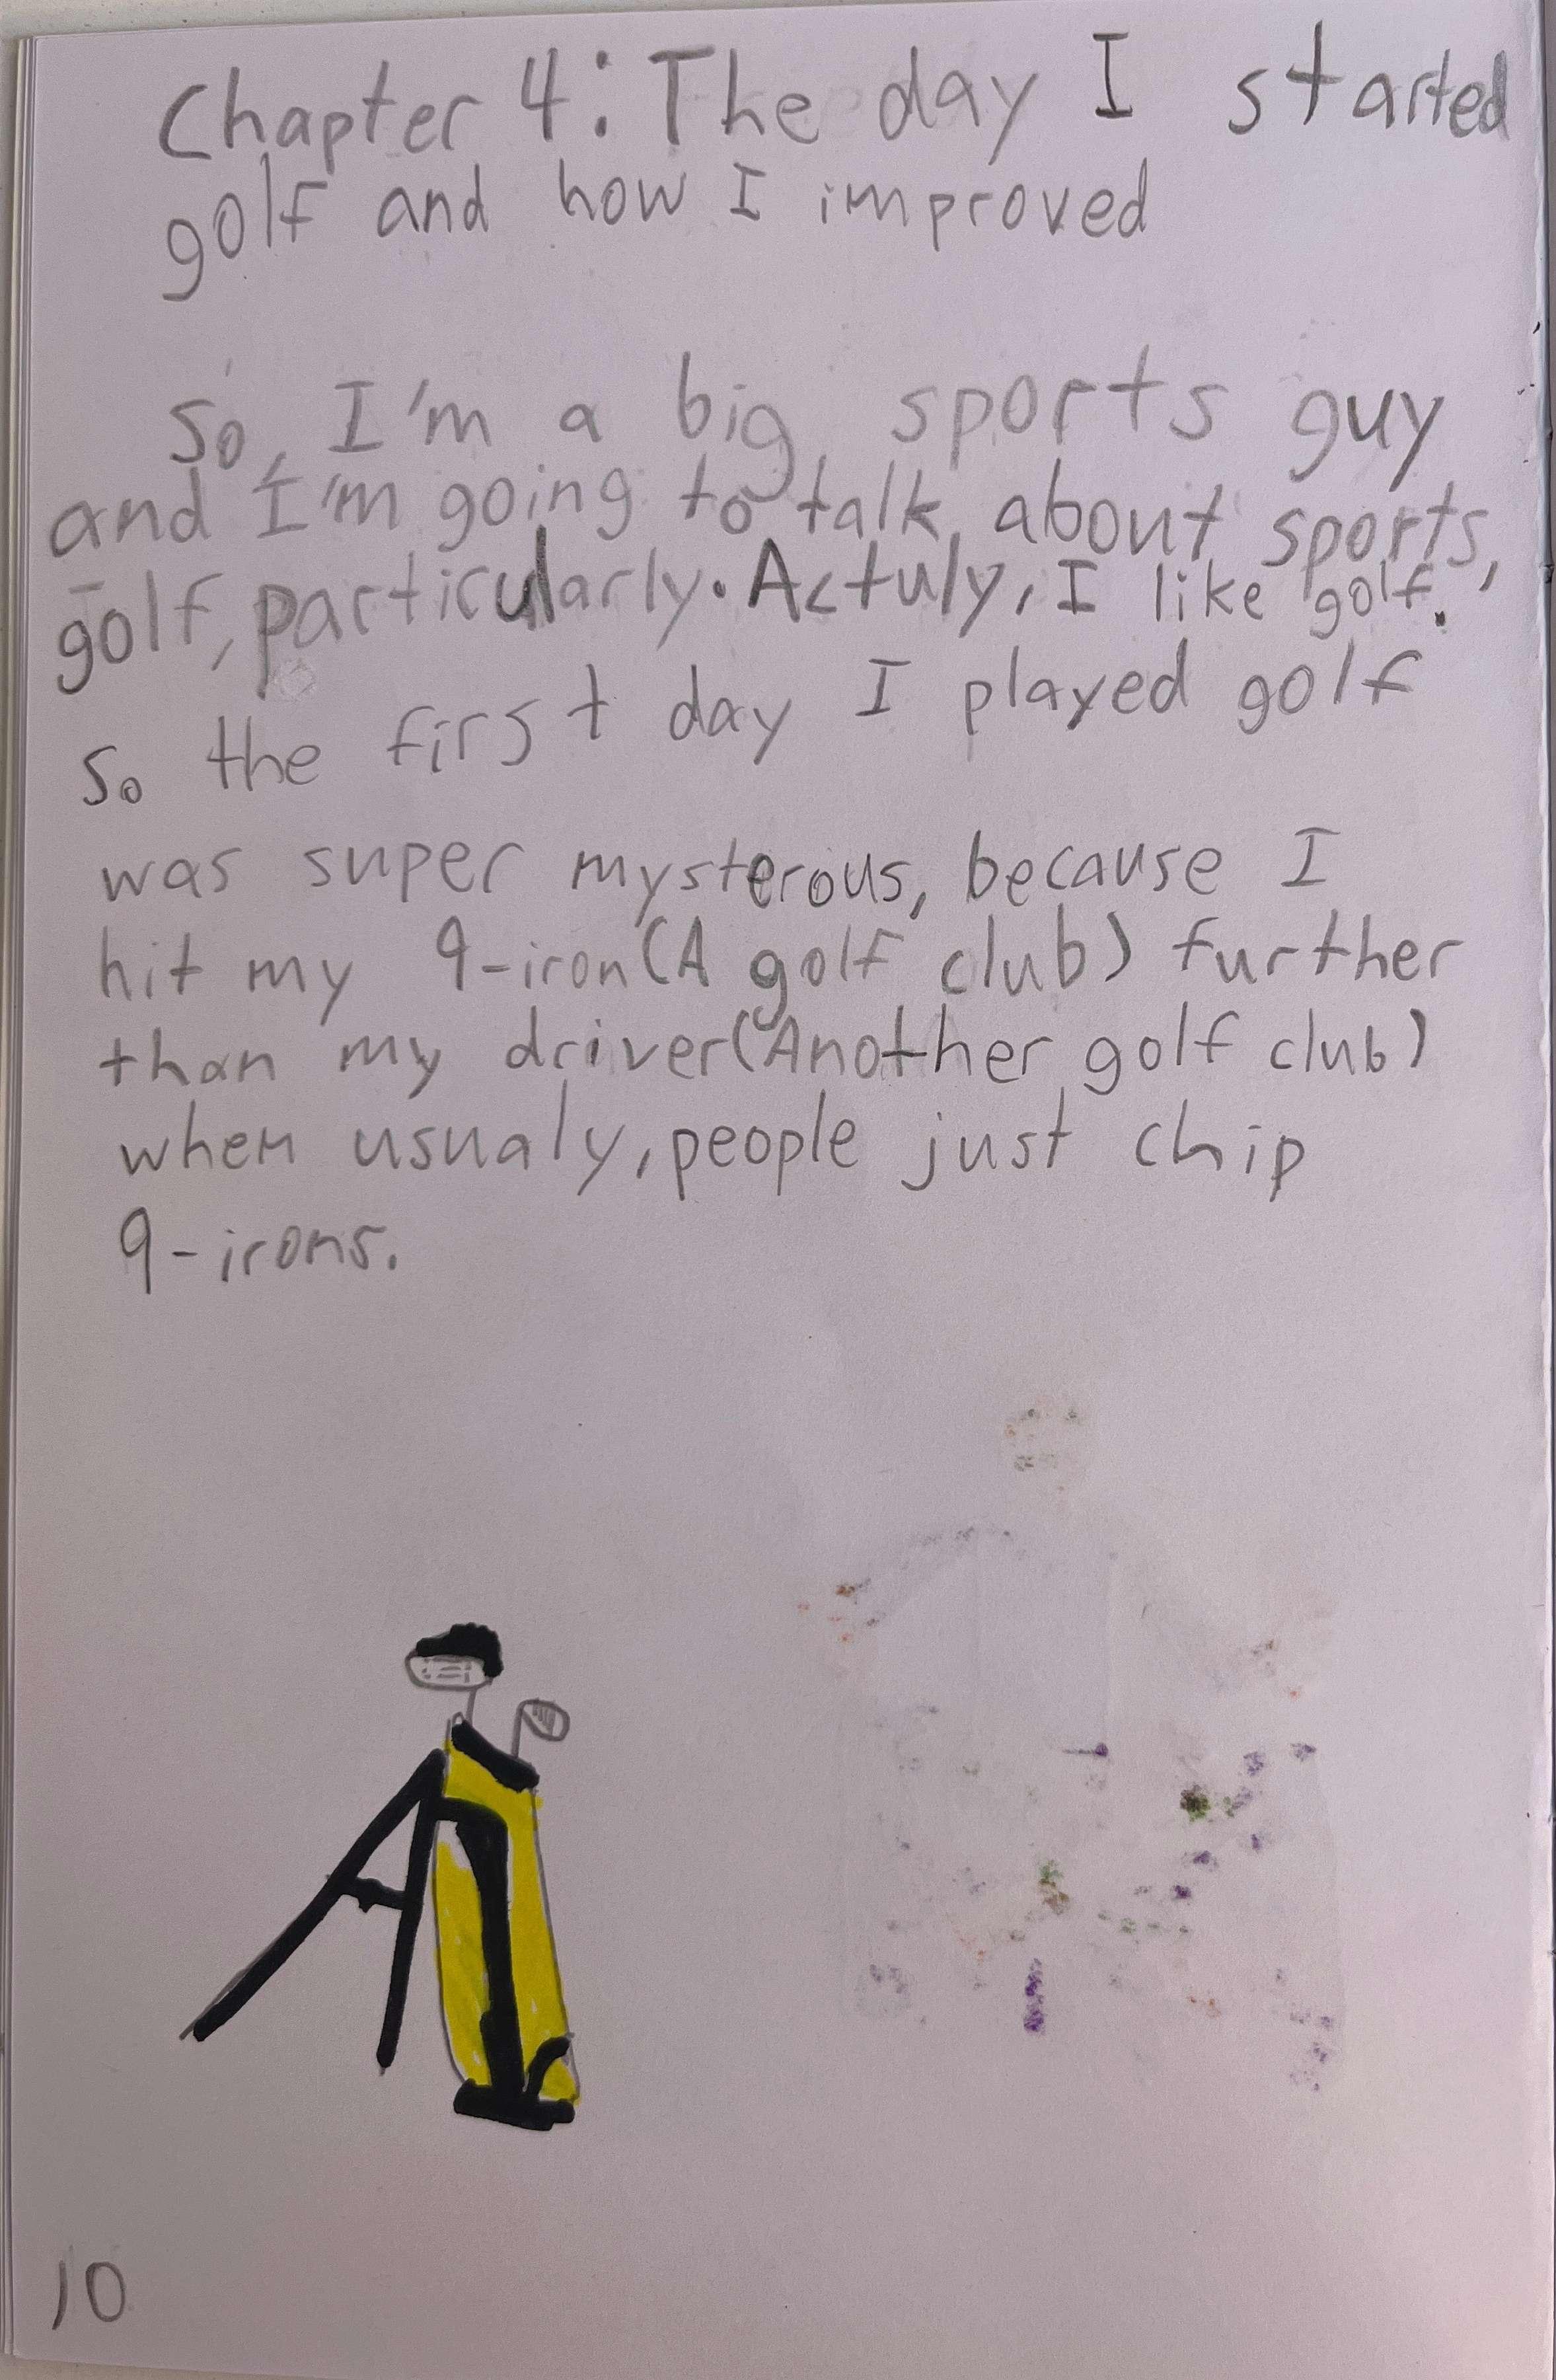 Chapter 4: The day I started
golf and how I improved
So, I'm a big sports guy
and I'm going to talk about sports,
golf, particularly. Actuly, I like golf.
So the first day I played golf
was super mysterous, because I
hit my 9-iron(A golf club) further
than my driver(Another golf club)
when usualy, people just chip
9-irons.
10